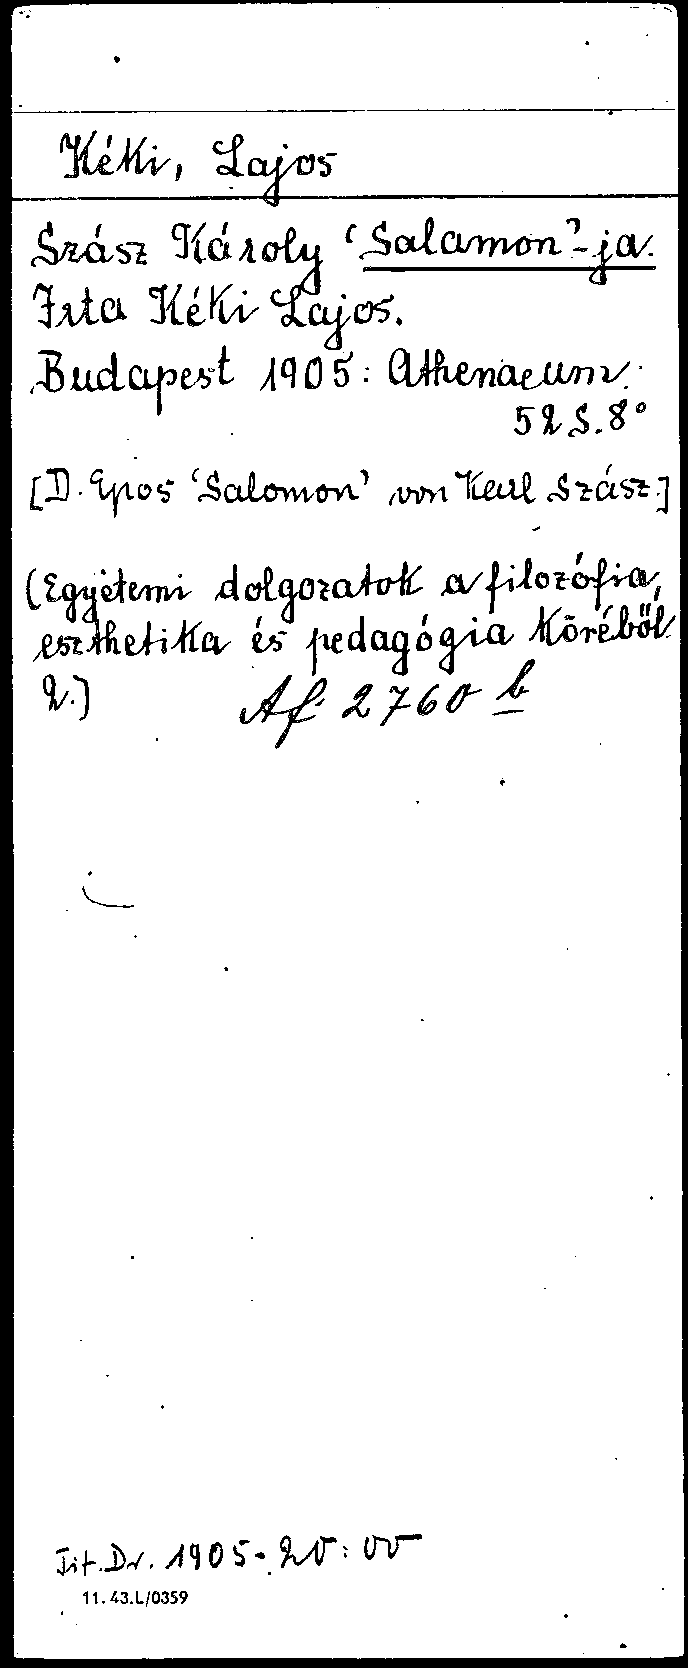 Kéki, Lajos
Szász Károly 'Salamon'-ja.
Irta Kéki Lajos.
Budapest 1905: Athenaeum.
52 S. 8°
[D. Epos 'Salomon' von Karl Szász.]
(Egyetemi dolgozatok a filozófia,
eszthetika és pedagógia köréből
2.)
Af 2760 b
Tit. Dr. 1905.
11.43.L/0359